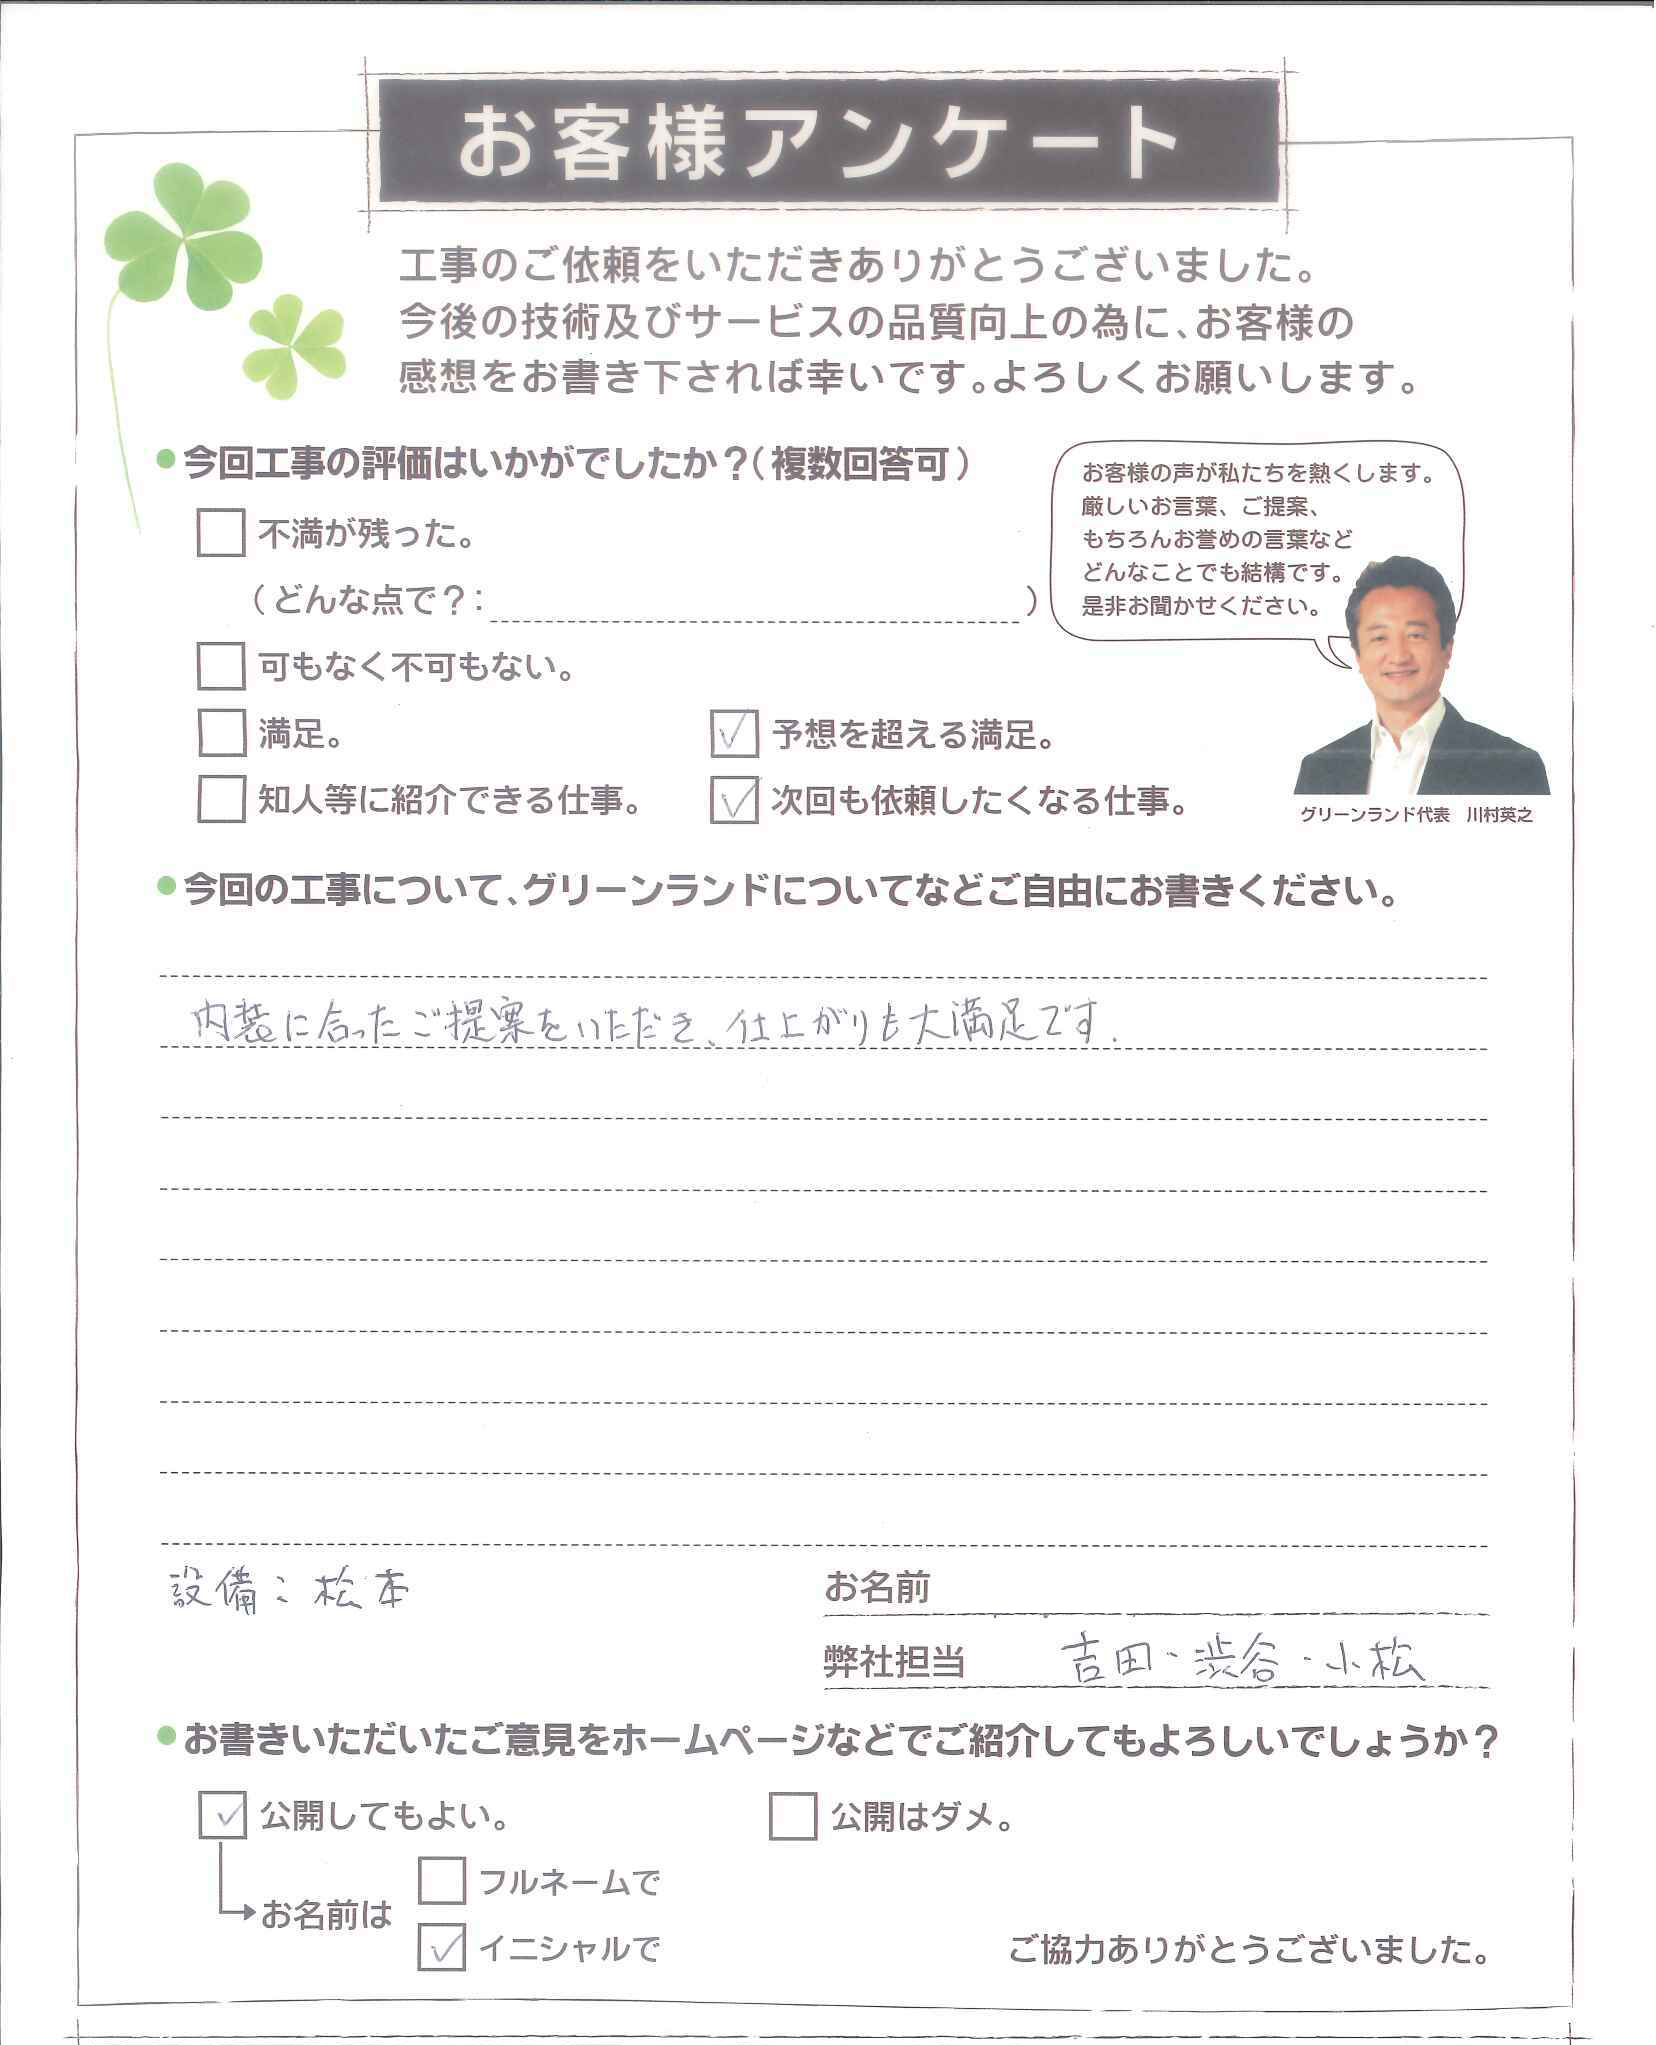 お客様アンケート
工事のご依頼をいただきありがとうございました。
今後の技術及びサービスの品質向上の為に、お客様の
感想をお書き下されば幸いです。よろしくお願いします。
●今回工事の評価はいかがでしたか？（複数回答可）
不満が残った。
（どんな点で？：　）
可もなく不可もない。
満足。
✓ 予想を超える満足。
知人等に紹介できる仕事。
✓ 次回も依頼したくなる仕事。
お客様の声が私たちを熱くします。
厳しいお言葉、ご提案、
もちろんお誉めの言葉など
どんなことでも結構です。
是非お聞かせください。
グリーンランド代表　川村英之
●今回の工事について、グリーンランドについてなどご自由にお書きください。
内装に合ったご提案をいただき、仕上がりも大満足です．
設備：松本
お名前
弊社担当　吉田・渋谷・小松
●お書きいただいたご意見をホームページなどでご紹介してもよろしいでしょうか？
✓ 公開してもよい。
公開はダメ。
お名前は
フルネームで
✓ イニシャルで
ご協力ありがとうございました。